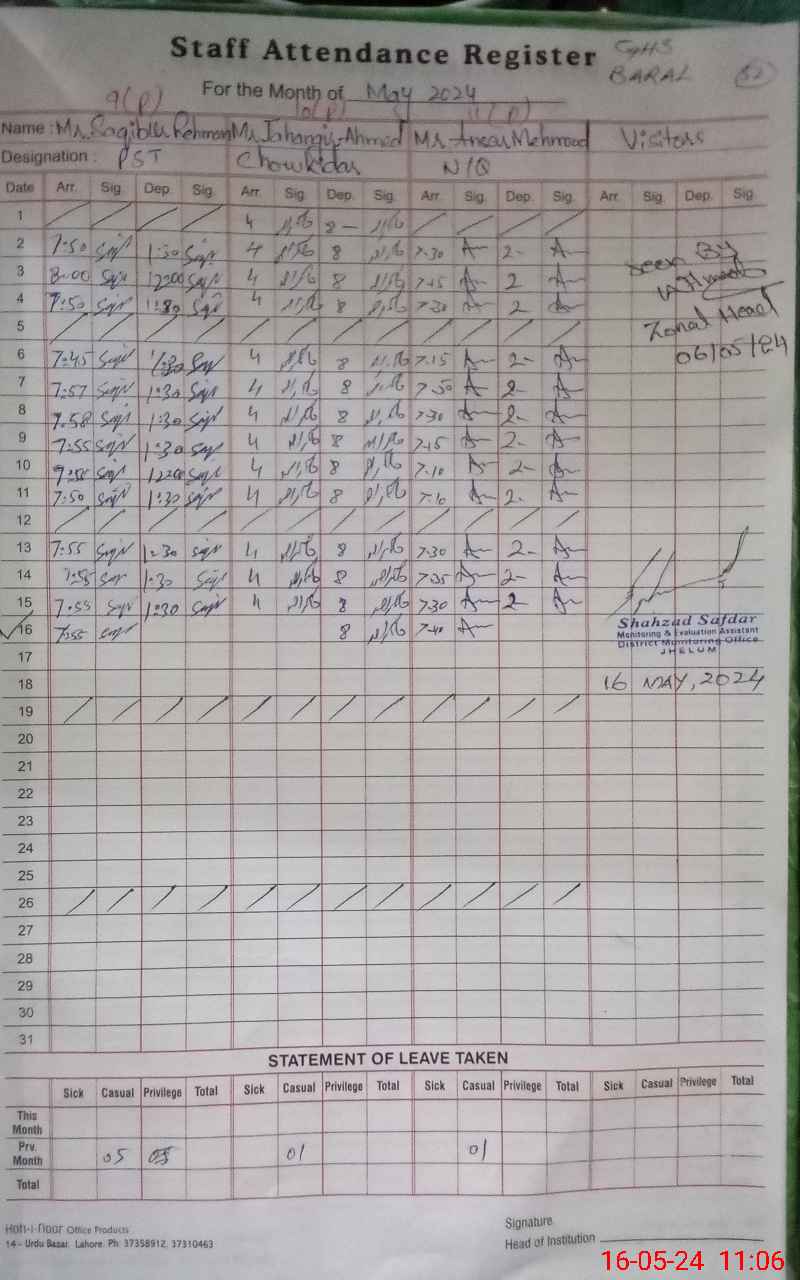 Staff Attendance Register
GHS
BARAL
(52)
For the Month of May 2024
9(P) 10(P) 11(P)
Name : Mr. Saqib Rehman Mr. Jahangir Ahmed Mr. Ansar Mehmood Visitors
Designation : PST Chowkidar N/Q
Date Arr. Sig. Dep. Sig. Arr. Sig. Dep. Sig. Arr. Sig. Dep. Sig. Arr. Sig. Dep. Sig.
1 4 8 -
2 7:50 1:30 4 8 7-30 2-
3 8:00 1200 4 8 7-15 2
4 7:50 1:30 4 8 7-30 2
Seen By
Zonal Head
06/05/24
5
6 7:45 1:30 4 8 7-15 2-
7 7:57 1:30 4 8 7-50 2-
8 7.58 1:30 4 8 7-30 2-
9 7:55 1:30 4 8 7-15 2-
10 7:55 1200 4 8 7-10 2-
11 7:50 1:30 4 8 7-10 2-
12
13 7:55 1:30 4 8 7-30 2-
14 7:55 1:30 4 8 7-35 2-
15 7:55 1:30 4 8 7-30 2-
16 7:55 8 7-40
Shahzad Safdar
Monitoring & Evaluation Assistant
District Monitoring Office
JHELUM
17
18
16 MAY, 2024
19
20
21
22
23
24
25
26
27
28
29
30
31
STATEMENT OF LEAVE TAKEN
Sick Casual Privilege Total Sick Casual Privilege Total Sick Casual Privilege Total Sick Casual Privilege Total
This Month
Prv. Month 05 01 01
Total
Koh-i-noor Office Products
14 - Urdu Bazar, Lahore. Ph: 37358912, 37310463
Signature
Head of Institution
16-05-24 11:06